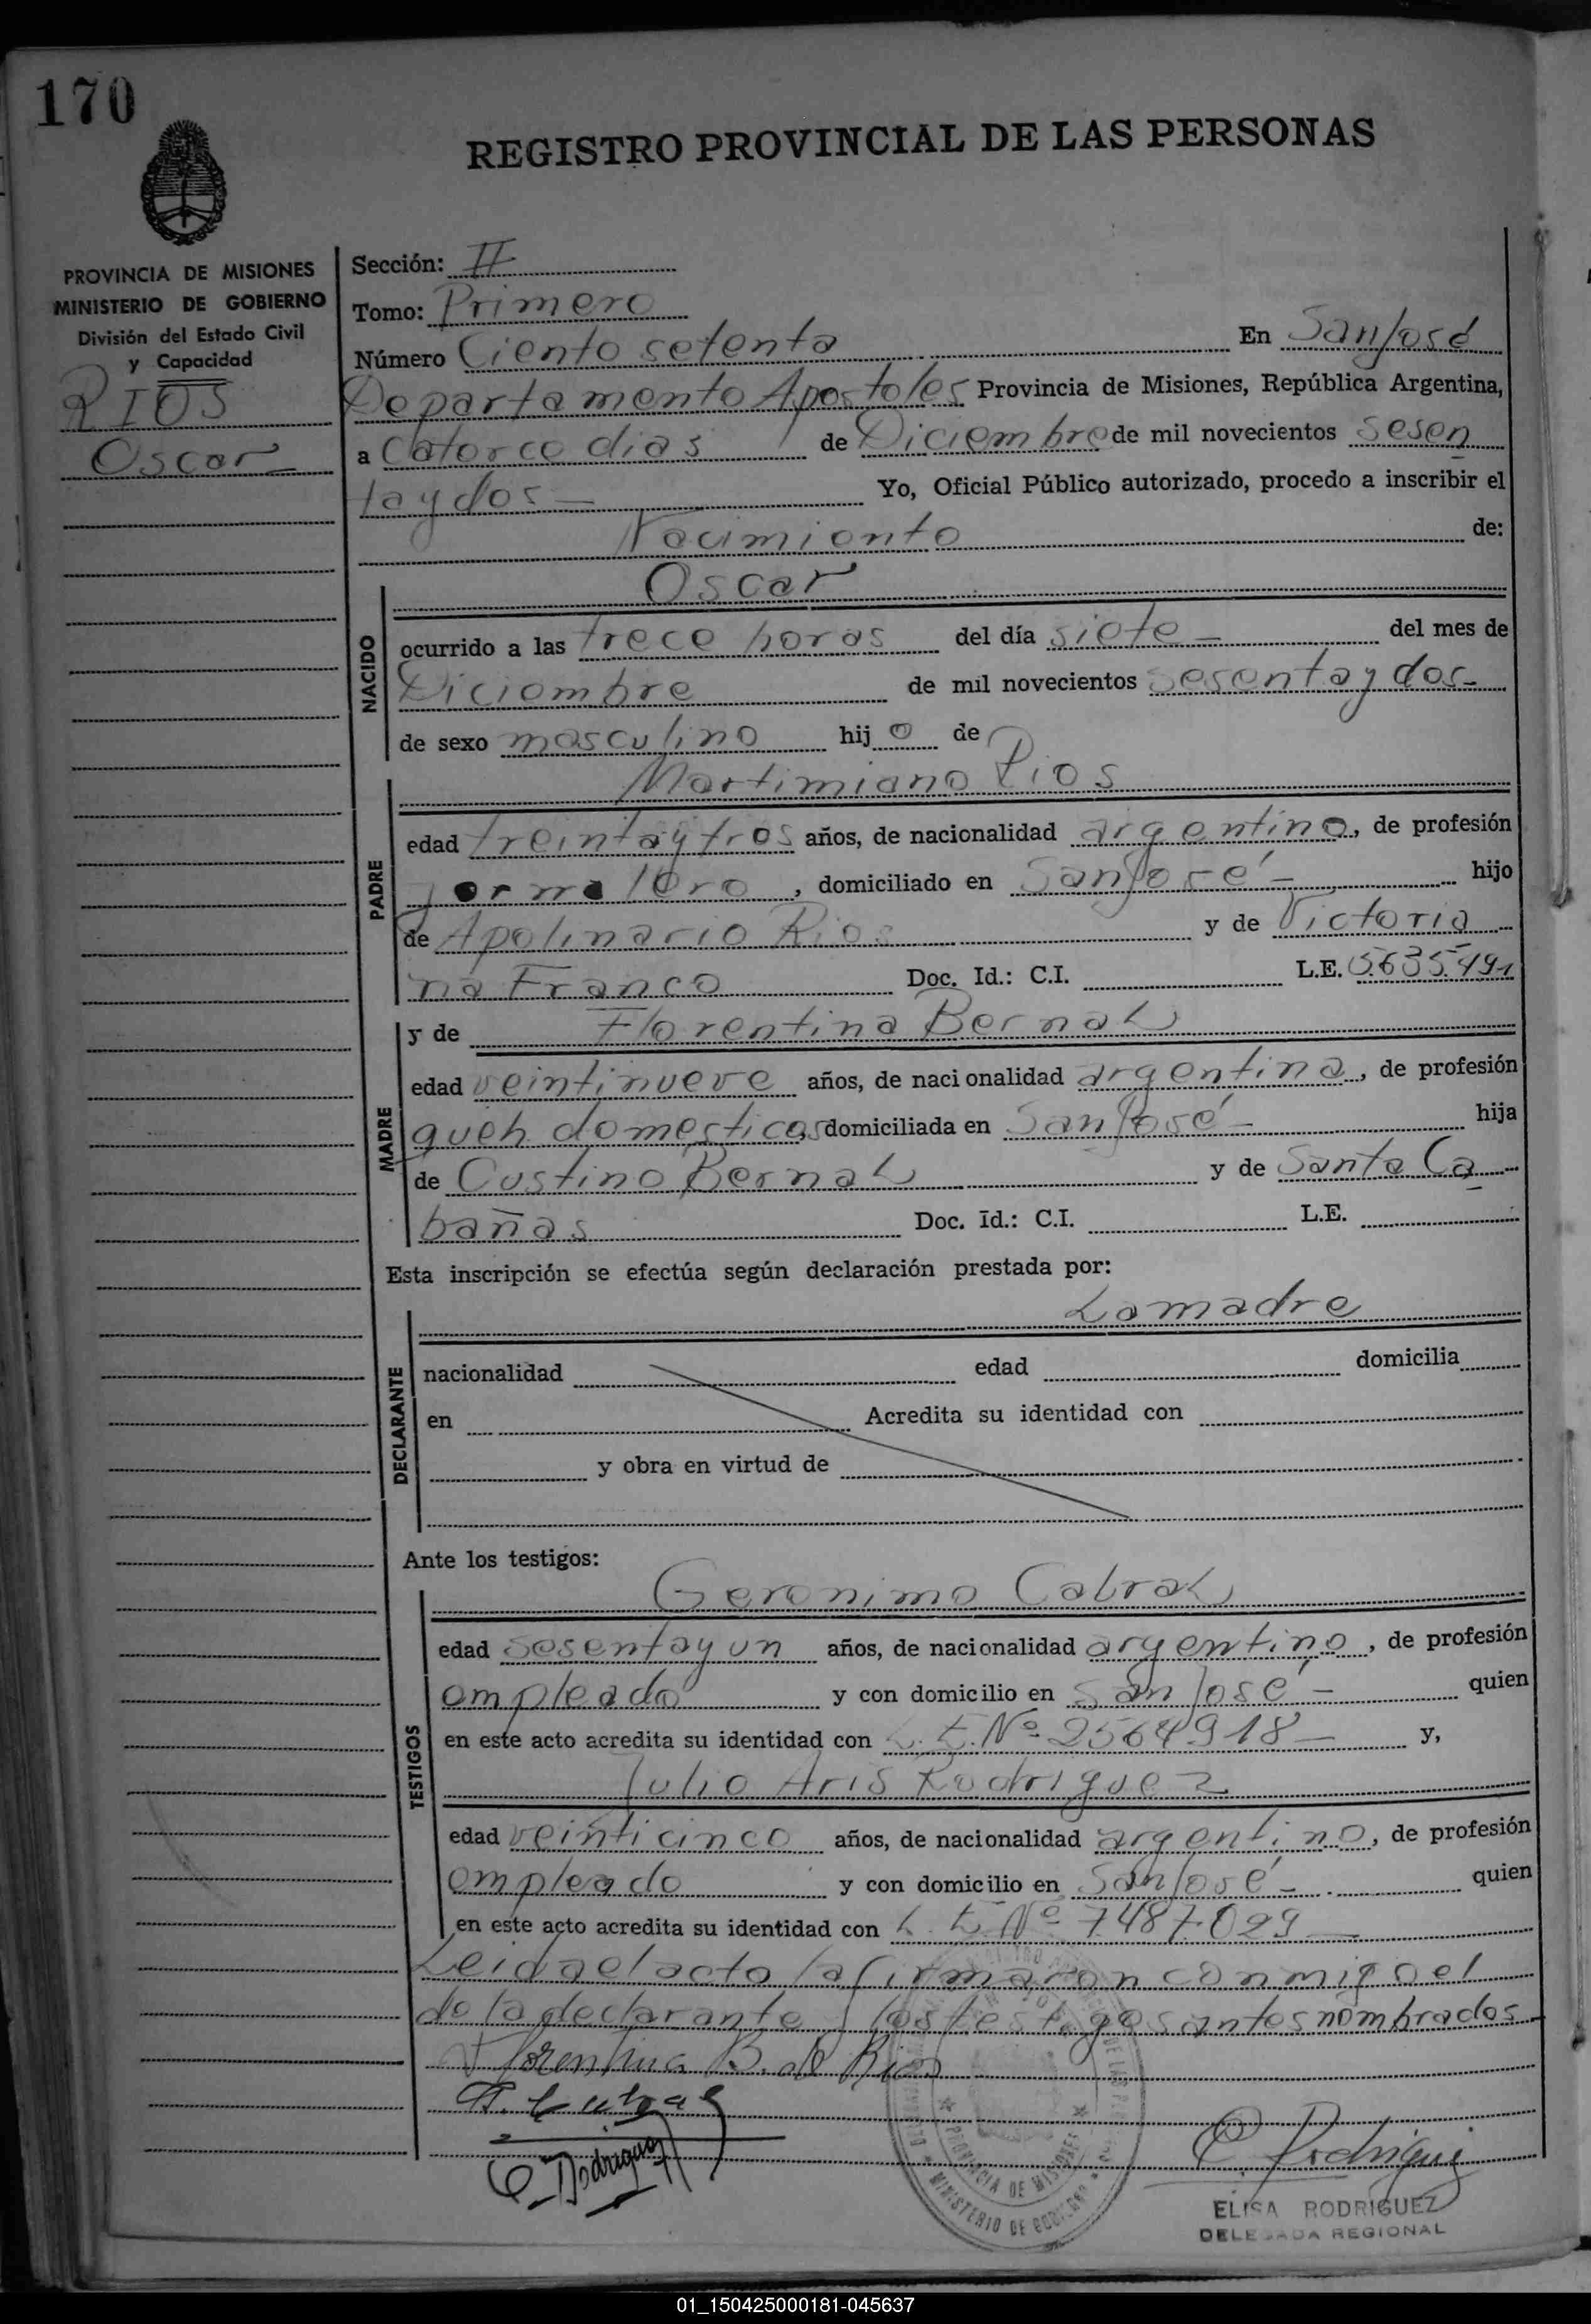 170
REGISTRO PROVINCIAL DE LAS PERSONAS
PROVINCIA DE MISIONES
MINISTERIO DE GOBIERNO
División del Estado Civil
y Capacidad
RIOS
Oscar
Sección: II
Tomo: Primero
Número Ciento setenta En San José
Departamento Apostoles Provincia de Misiones, República Argentina,
a Catorce dias de Diciembre de mil novecientos sesen
taydos Yo, Oficial Público autorizado, procedo a inscribir el
Nacimiento de:
Oscar
NACIDO
ocurrido a las trece horas del día siete del mes de
Diciembre de mil novecientos sesentaydos
de sexo masculino hijo de
Martimiano Rios
PADRE
edad treintaytres años, de nacionalidad argentino, de profesión
jornalero, domiciliado en San José hijo
de Apolinario Rios y de Victoria
na Franco Doc. Id.: C.I. L.E. 5.635.491
MADRE
y de Florentina Bernal
edad veintinueve años, de nacionalidad argentina, de profesión
queh. domesticos, domiciliada en San José hija
de Custino Bernal y de Santa Ca
bañas Doc. Id.: C.I. L.E.
Esta inscripción se efectúa según declaración prestada por:
La madre
DECLARANTE
nacionalidad edad domicilia
en Acredita su identidad con
y obra en virtud de
Ante los testigos:
TESTIGOS
Geronimo Cabral
edad sesentayun años, de nacionalidad argentino, de profesión
empleado y con domicilio en San José quien
en este acto acredita su identidad con L.E. Nº 2564918 y,
Julio Aris Rodriguez
edad veinticinco años, de nacionalidad argentino, de profesión
empleado y con domicilio en San José quien
en este acto acredita su identidad con L.E Nº 7.487.029
Leida el acta la firmaron conmigo el
de la declarante y los testigos antes nombrados
Florentina B. de Rios
Rodriguez
PROVINCIA DE MISIONES
MINISTERIO DE GOBIERNO
ELISA RODRIGUEZ
DELEGADA REGIONAL
01_150425000181-045637